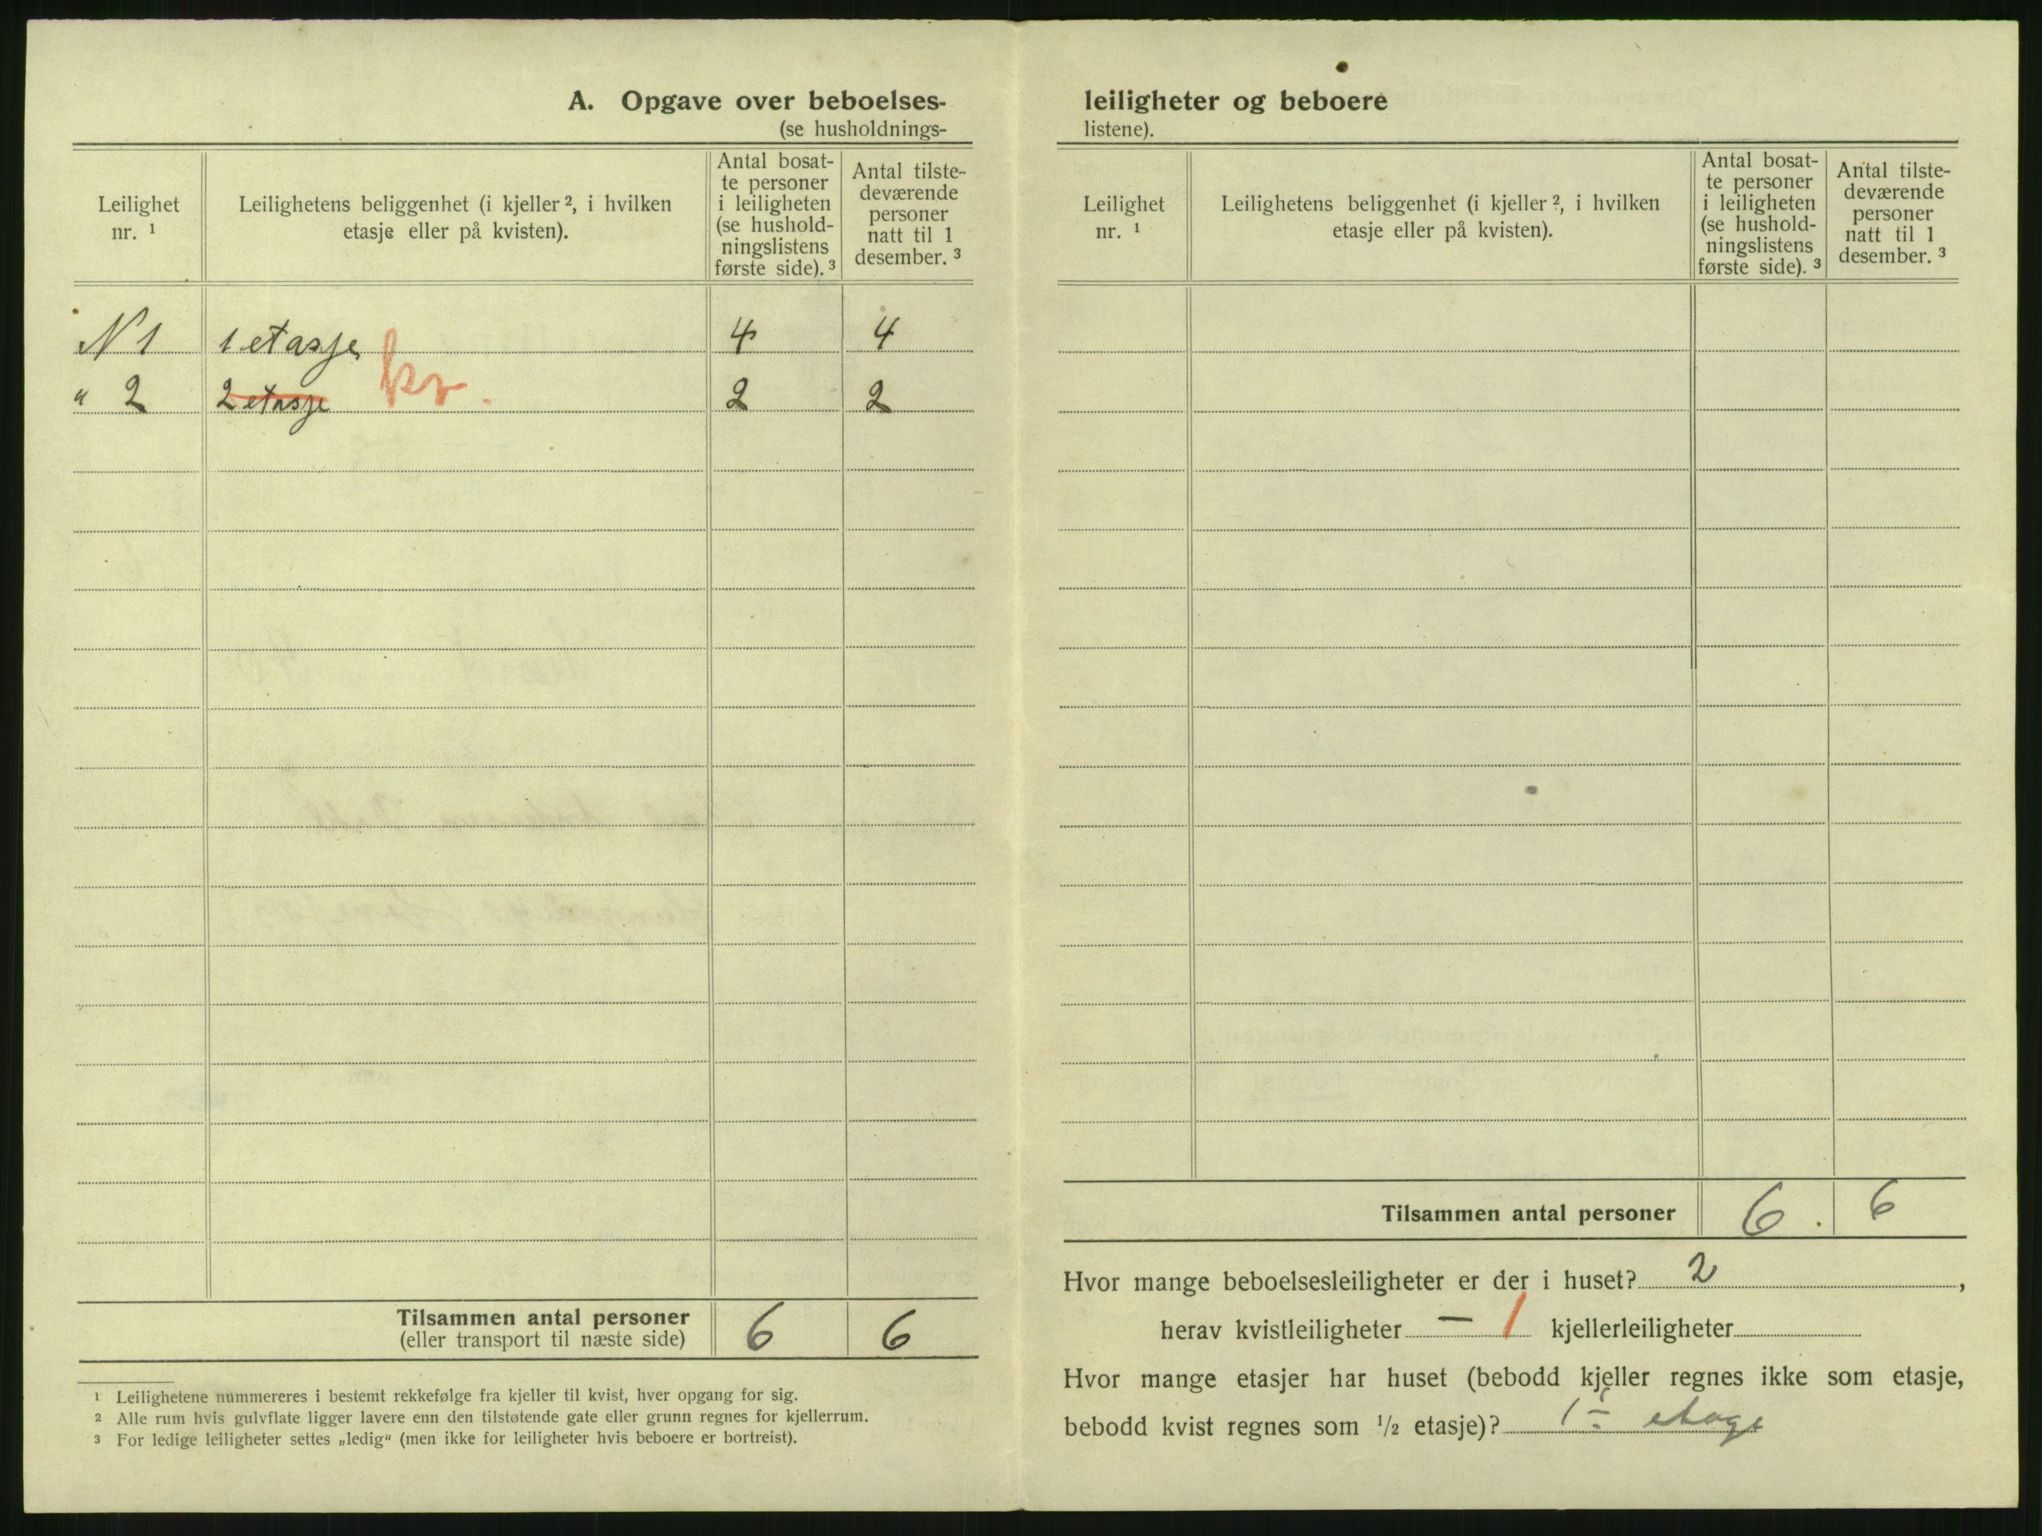 A. Opgave over beboelses-
(se husholdnings-
Leilighet
nr. ¹
Leilighetens beliggenhet (i kjeller ², i hvilken
etasje eller på kvisten).
Antal bosat-
te personer
i leiligheten
(se hushold-
ningslistens
første side). ³
Antal tilste-
deværende
personer
natt til 1
desember. ³
N 1 1 etasje 4 4
" 2 2 etasje kv. 2 2
Tilsammen antal personer 6 6
(eller transport til næste side)
¹ Leilighetene nummereres i bestemt rekkefølge fra kjeller til kvist, hver opgang for sig.
² Alle rum hvis gulvflate ligger lavere enn den tilstøtende gate eller grunn regnes for kjellerrum.
³ For ledige leiligheter settes „ledig“ (men ikke for leiligheter hvis beboere er bortreist).
leiligheter og beboere
listene).
Leilighet
nr. ¹
Leilighetens beliggenhet (i kjeller ², i hvilken
etasje eller på kvisten).
Antal bosat-
te personer
i leiligheten
(se hushold-
ningslistens
første side). ³
Antal tilste-
deværende
personer
natt til 1
desember. ³
Tilsammen antal personer 6. 6
Hvor mange beboelsesleiligheter er der i huset? 2,
herav kvistleiligheter — 1 kjellerleiligheter
Hvor mange etasjer har huset (bebodd kjeller regnes ikke som etasje,
bebodd kvist regnes som ½ etasje)? etage